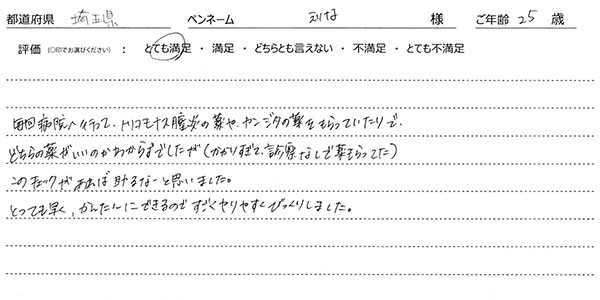 都道府県 埼玉県 ペンネーム えりな 様 ご年齢 25 歳
評価（○印でお選びください）： とても満足 ・ 満足 ・ どちらとも言えない ・ 不満足 ・ とても不満足
毎回病院へ行って、トリコモナス膣炎の薬や、カンジタの薬をもらっていたりで、
どちらの薬がいいのかわからずでしたが（かかりすぎで、診察なしで薬もらってた）
このチェックがあれば助るなーと思いました。
とっても早く、かんたんにできるのですごくやりやすくびっくりしました。